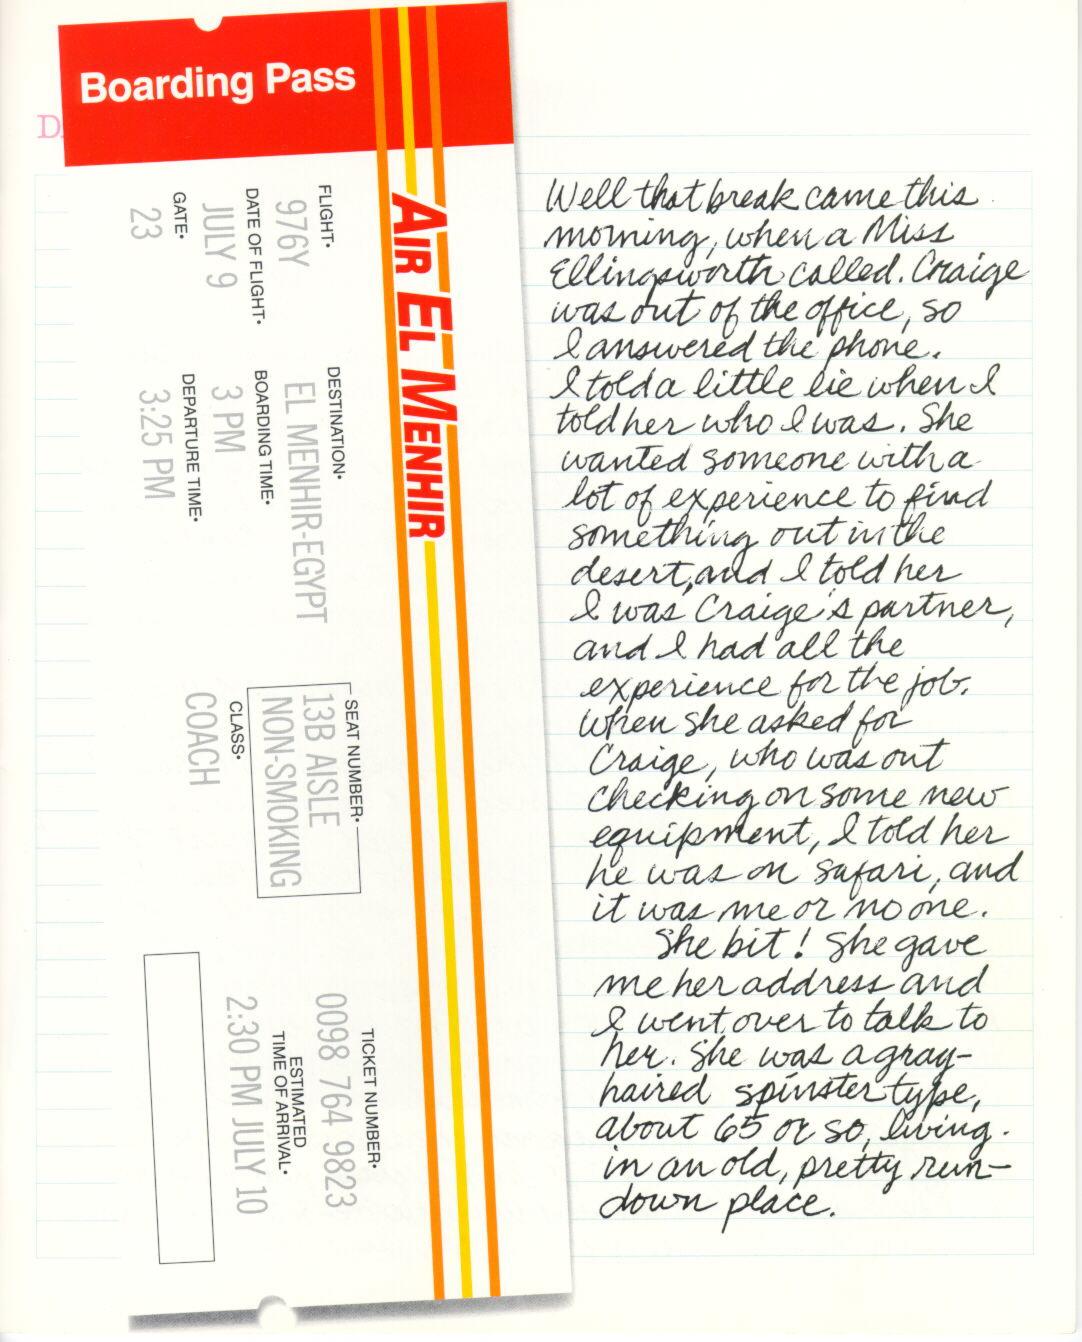 Boarding Pass
AIR EL MENHIR
FLIGHT•
976Y
DATE OF FLIGHT•
JULY 9
GATE•
23
DESTINATION•
EL MENHIR-EGYPT
BOARDING TIME•
3 PM
DEPARTURE TIME•
3:25 PM
SEAT NUMBER•
13B AISLE
NON-SMOKING
CLASS•
COACH
TICKET NUMBER•
0098 764 9823
ESTIMATED
TIME OF ARRIVAL•
2:30 PM JULY 10
Well that break came this
morning, when a Miss
Ellingsworth called. Craige
was out of the office, so
I answered the phone.
I told a little lie when I
told her who I was. She
wanted someone with a
lot of experience to find
something out in the
desert, and I told her
I was Craige's partner,
and I had all the
experience for the job.
When she asked for
Craige, who was out
checking on some new
equipment, I told her
he was on safari, and
it was me or no one.
She bit! She gave
me her address and
I went over to talk to
her. She was a gray-
haired spinster type,
about 65 or so, living
in an old, pretty run-
down place.